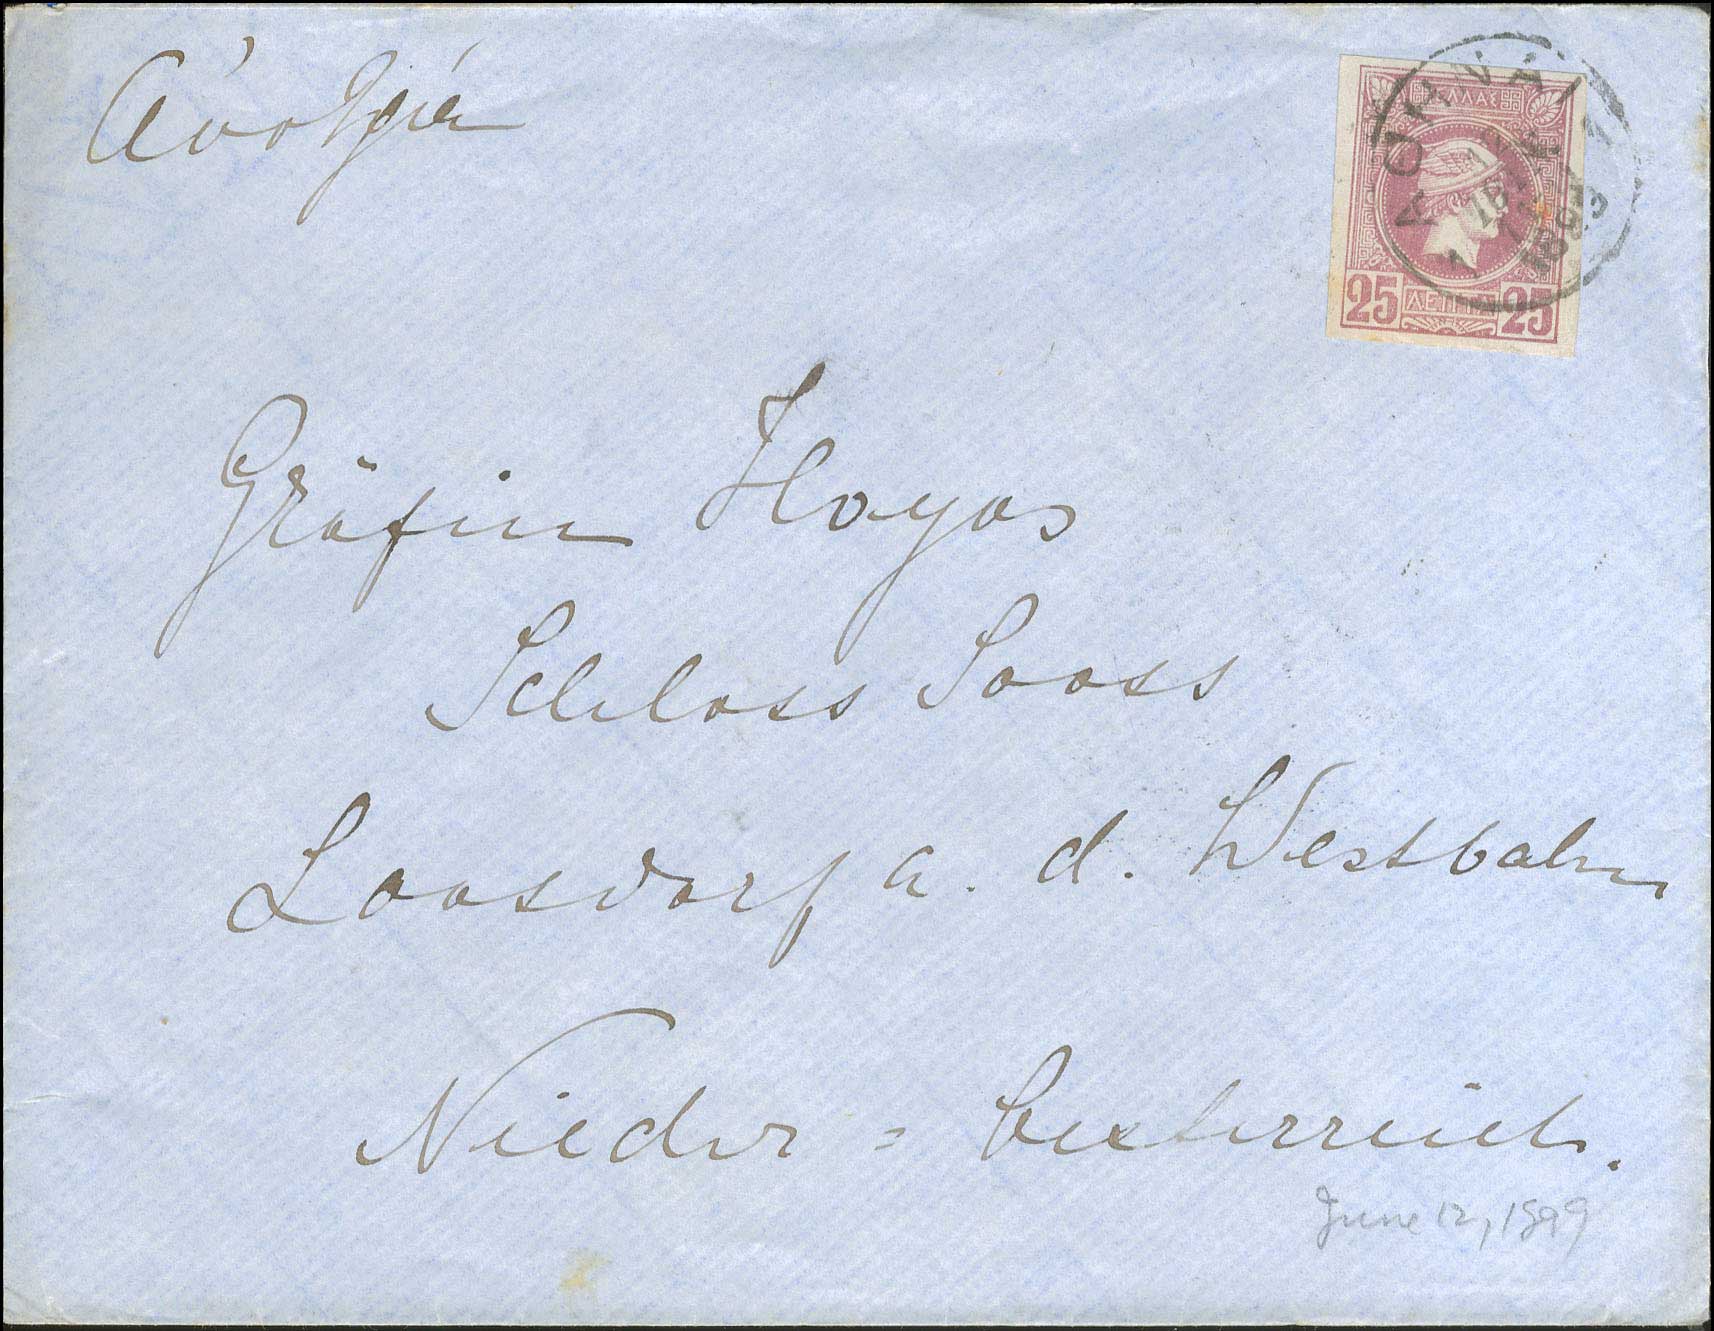 Αυστρία
ΕΛΛΑΣ
ΑΘΗΝΑΙ
1899
25 ΛΕΠΤΑ 25
Gräfin Hoyos
Schloss Sooss
Loosdorf a. d. Westbahn
Nieder = Oesterreich.
June 12, 1899